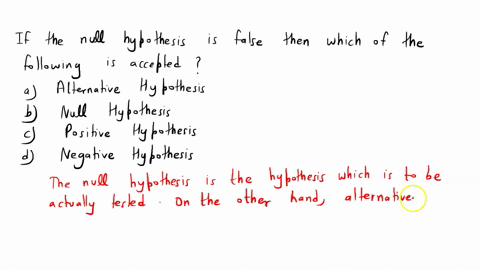 If the null hypothesis is false then which of the
following is accepted ?
a) Alternative Hypothesis
b) Null Hypothesis
c) Positive Hypothesis
d) Negative Hypothesis
The null hypothesis is the hypothesis which is to be
actually tested. On the other hand, alternative